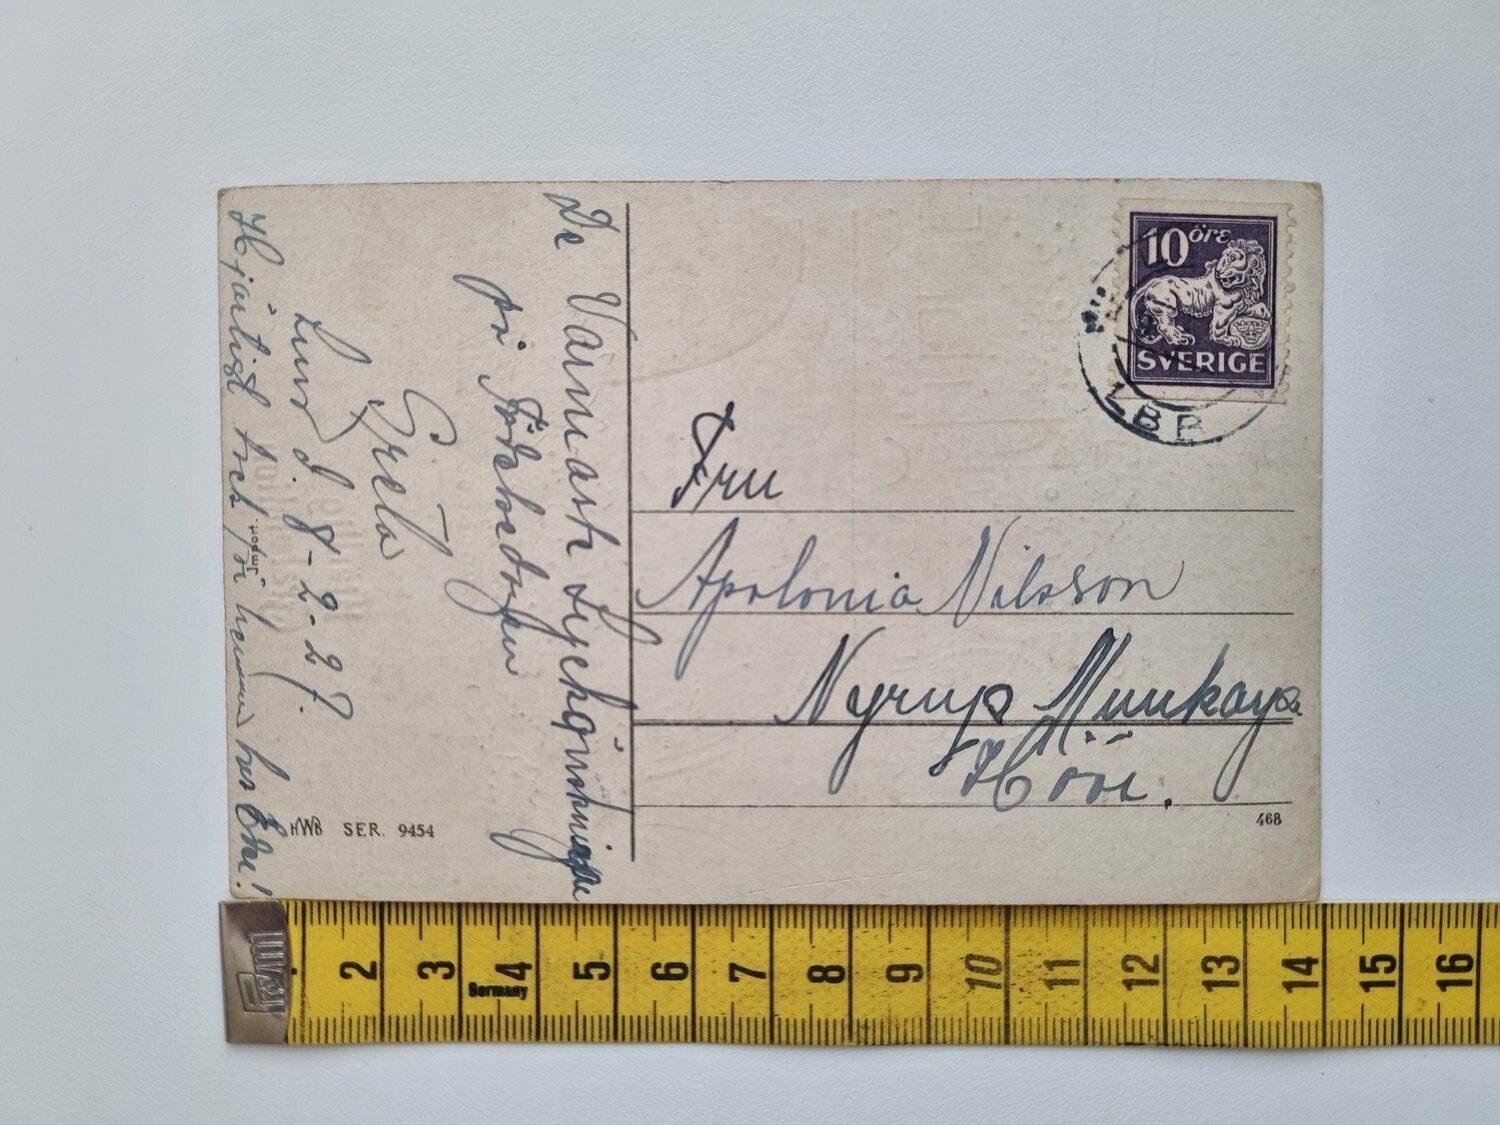 De Varmaste Lyckönskningar
på Födelsedagen
Greta
Lund d. 8-2-27.
Hjärtligt tack för hemma hos Eder!
Import.
HWB SER. 9454
10 öre
SVERIGE
LBP
Fru
Apolonia Nilsson
Nyrup Munkarp
Höör.
468
2 3 4 5 6 7 8 9 10 11 12 13 14 15 16
Germany